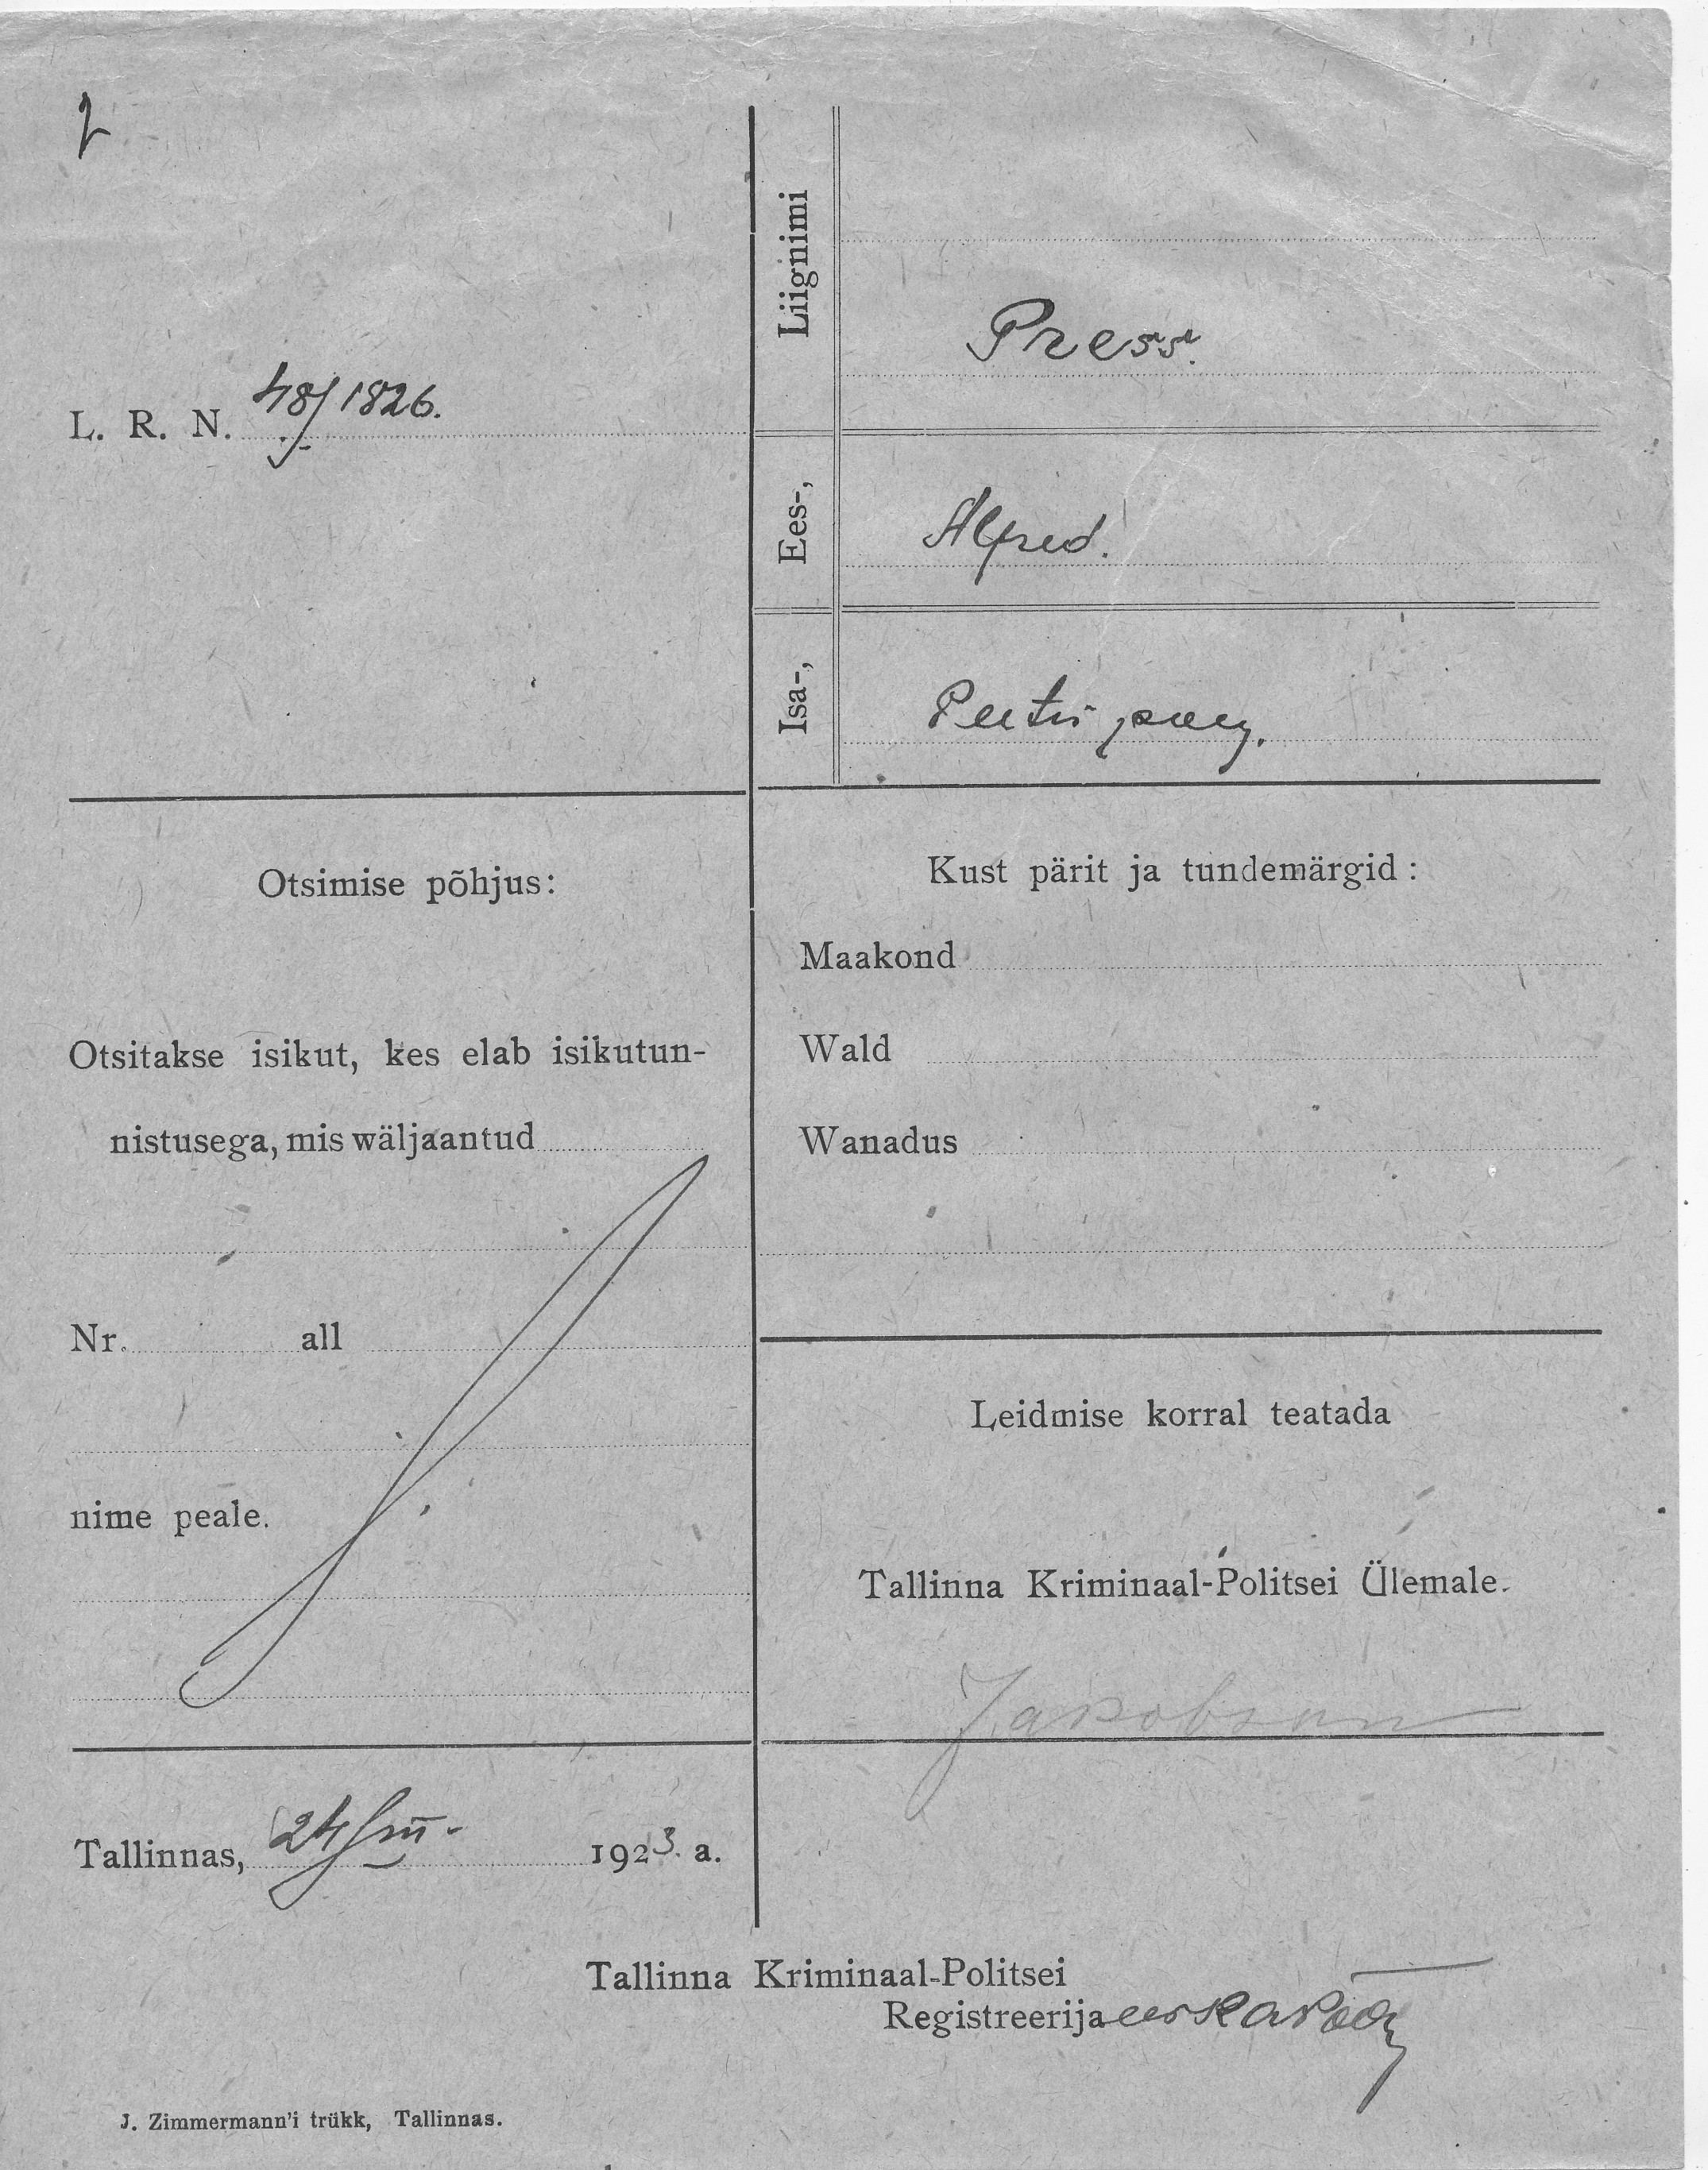 2
L. R. N. 48/1826.
Liignimi
Press.
Ees-,
Alfred.
Isa-,
Peetri poeg.
Otsimise põhjus:
Otsitakse isikut, kes elab isikutun-
nistusega, mis wäljaantud
Nr. all
nime peale.
Tallinnas, 24/VII- 1923. a.
Kust pärit ja tundemärgid:
Maakond
Wald
Wanadus
Leidmise korral teatada
Tallinna Kriminaal-Politsei Ülemale.
Jakobson
Tallinna Kriminaal-Politsei
Registreerija
J. Zimmermann'i trükk, Tallinnas.